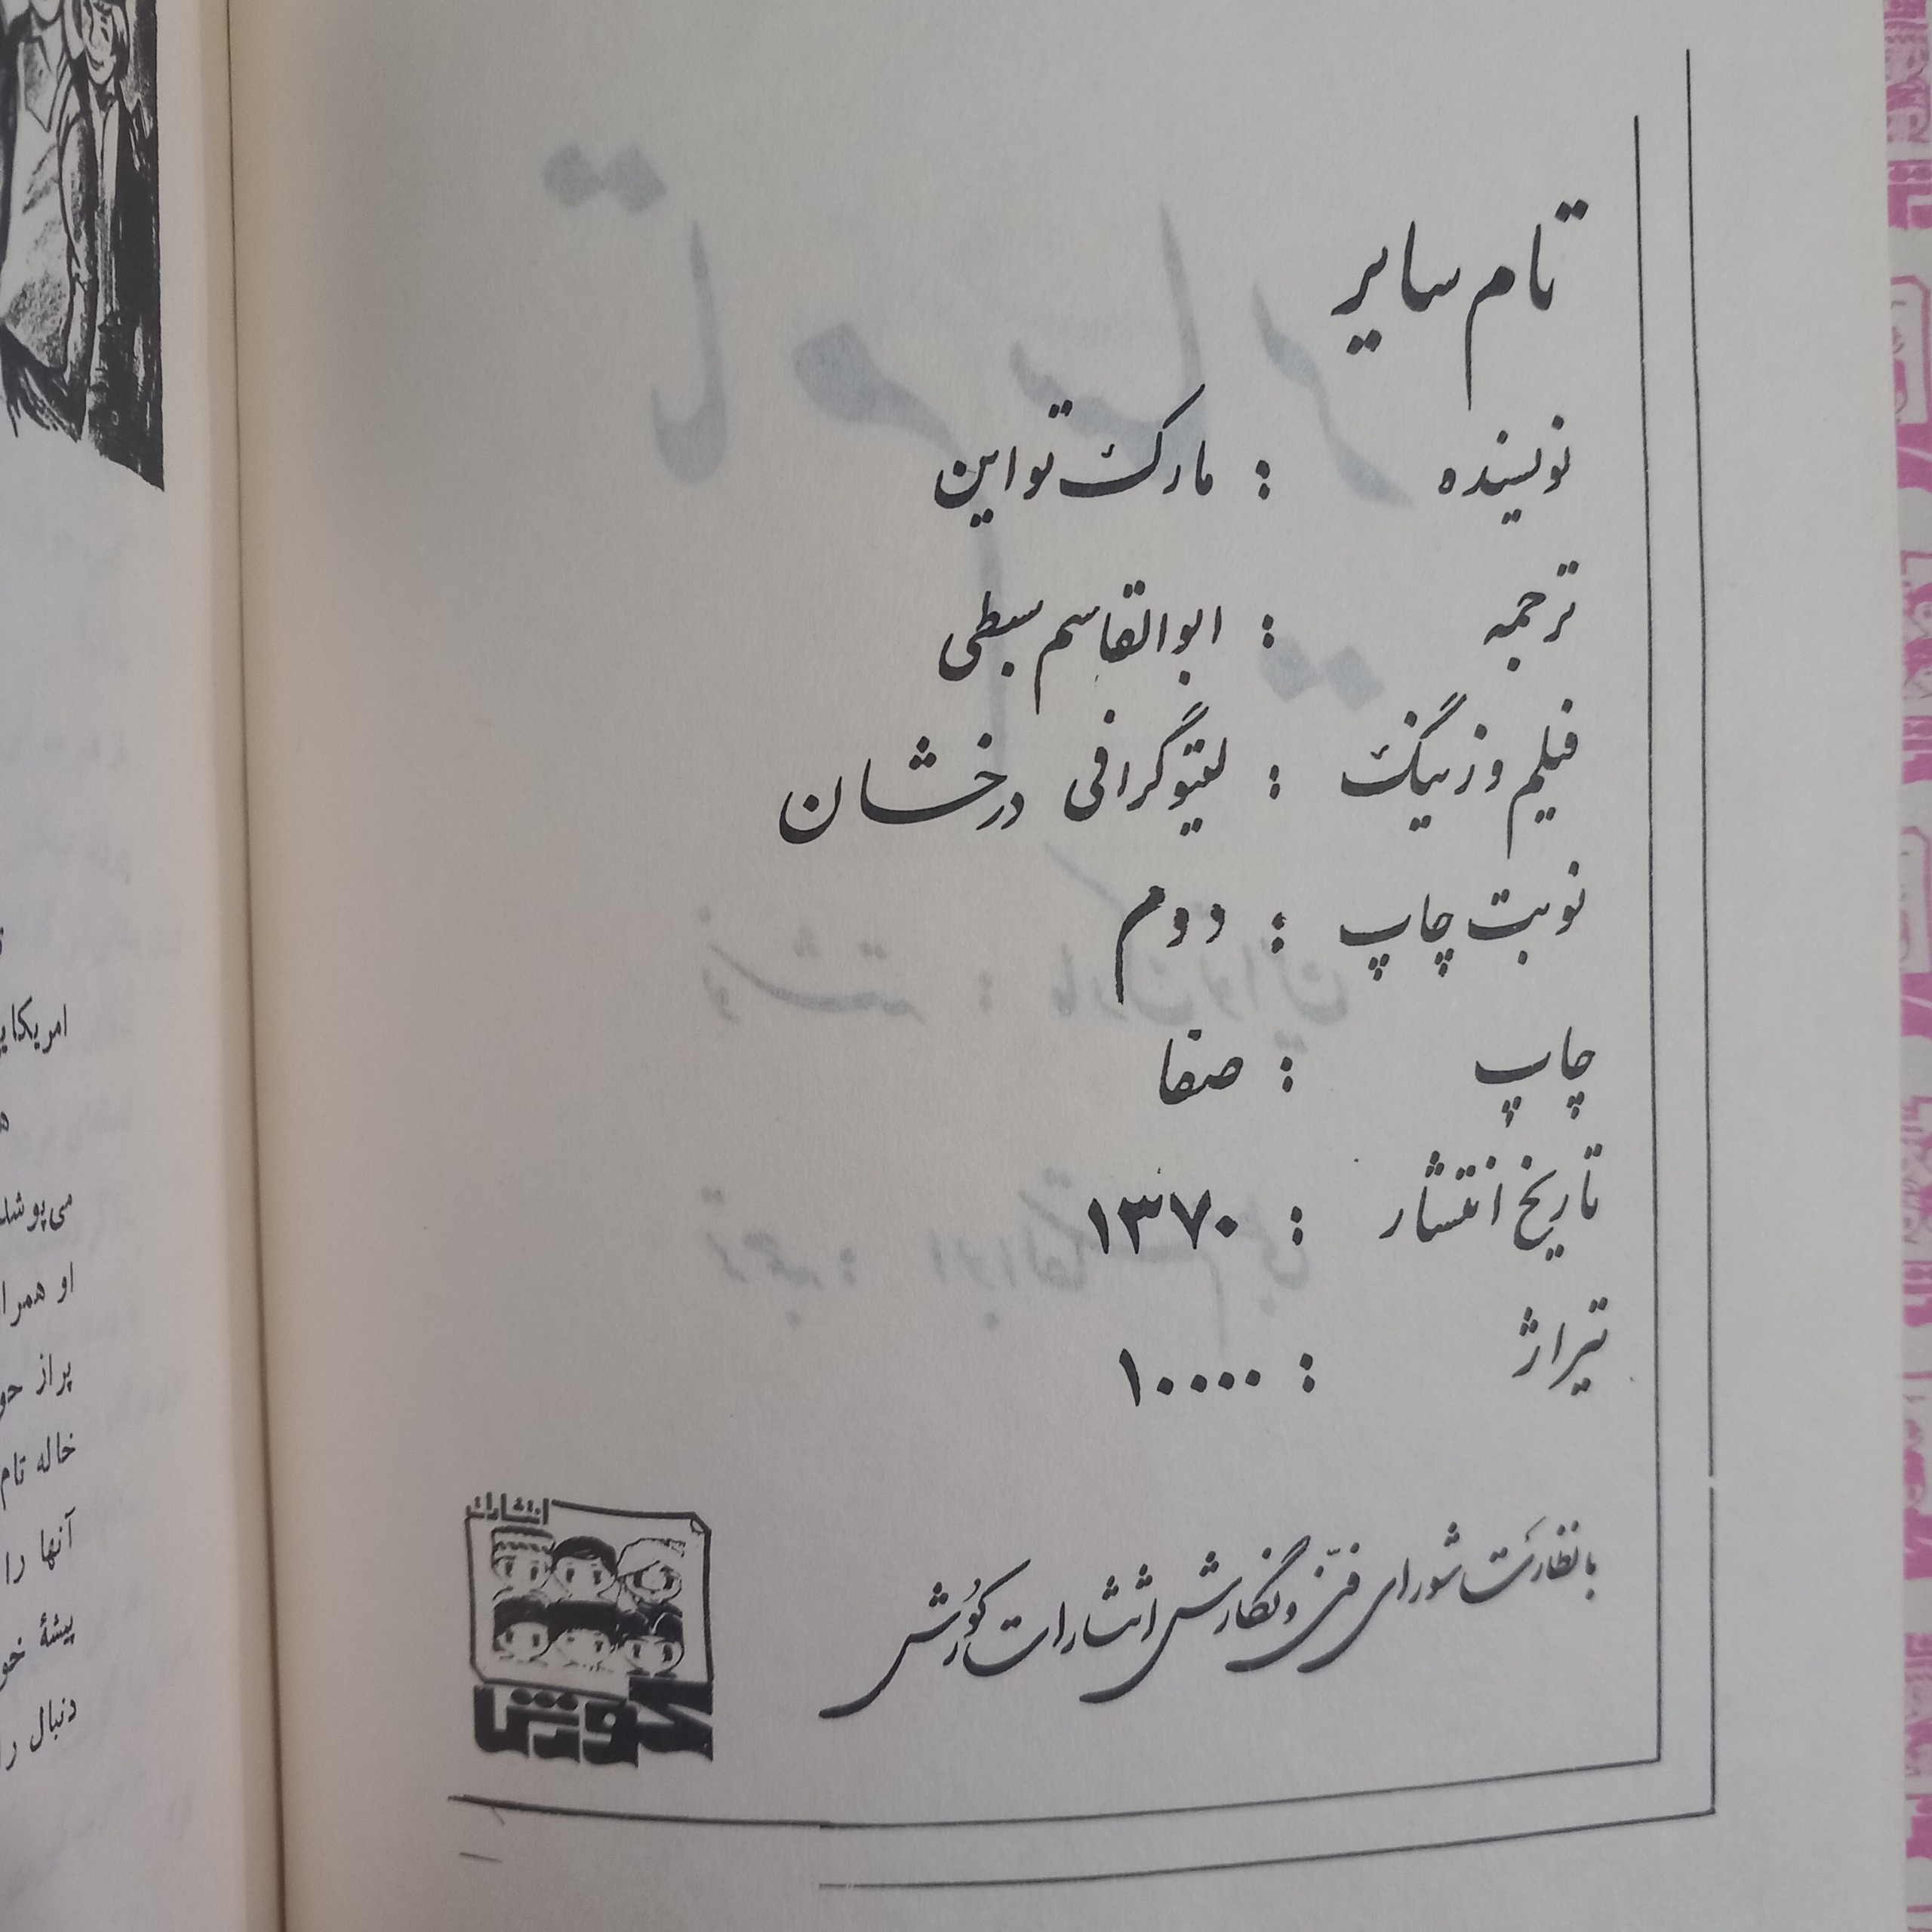 تام سایر
نویسنده : مارک تواین
ترجمه : ابوالقاسم سبطی
فیلم و زینگ : لیتوگرافی درخشان
نوبت چاپ : دوم
چاپ : صفا
تاریخ انتشار : ۱۳۷۰
تیراژ : ۱۰۰۰۰
با نظارت شورای فنی و نگارش انتشارات کورش
انتشارات
کورش
امریکایی
می‌پوشد
او همرا
پراز حو
خاله تام
آنها را
پیشهٔ خو
دنبال ر